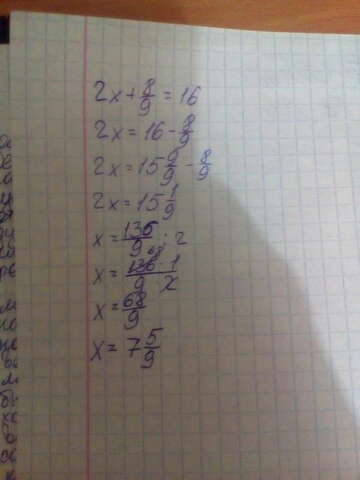 2x + 8/9 = 16
2x = 16 - 8/9
2x = 15 9/9 - 8/9
2x = 15 1/9
x = 136/9 : 2
x = 136 68 · 1 / 9 · 2
x = 68/9
x = 7 5/9